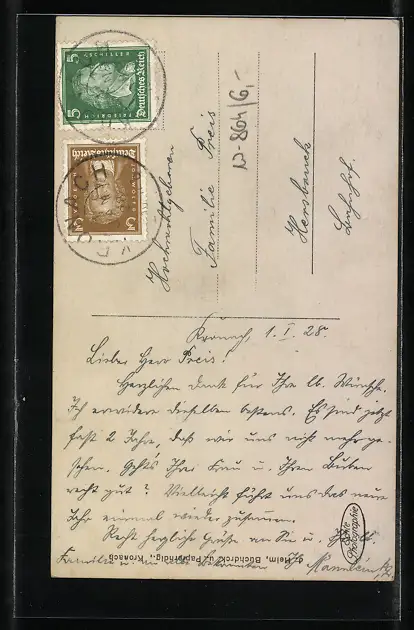 5
Deutsches Reich
FRIEDRICH
3
Deutsches Reich
KRONACH
N-864/6,-
Hochwohlgeboren
Familie Preis
Hersbruck
Bahnhof.
Kronach, 1. I. 28.
Lieber Herr Preis!
Herzlichen Dank für Ihre lb. Wünsche.
Ich erwidere dieselben bestens. Es sind jetzt
fast 2 Jahre, daß wir uns nicht mehr ge-
sehen. Geht's Ihrer Frau u. Ihren Buben
recht gut? Vielleicht führt uns das neue
Jahr einmal wieder zusammen.
Recht herzliche Grüße an Sie u. Ihre lb.
Familie
Echte
Photographie
Heim, Buchdrck. u. Papierhdlg., Kronach